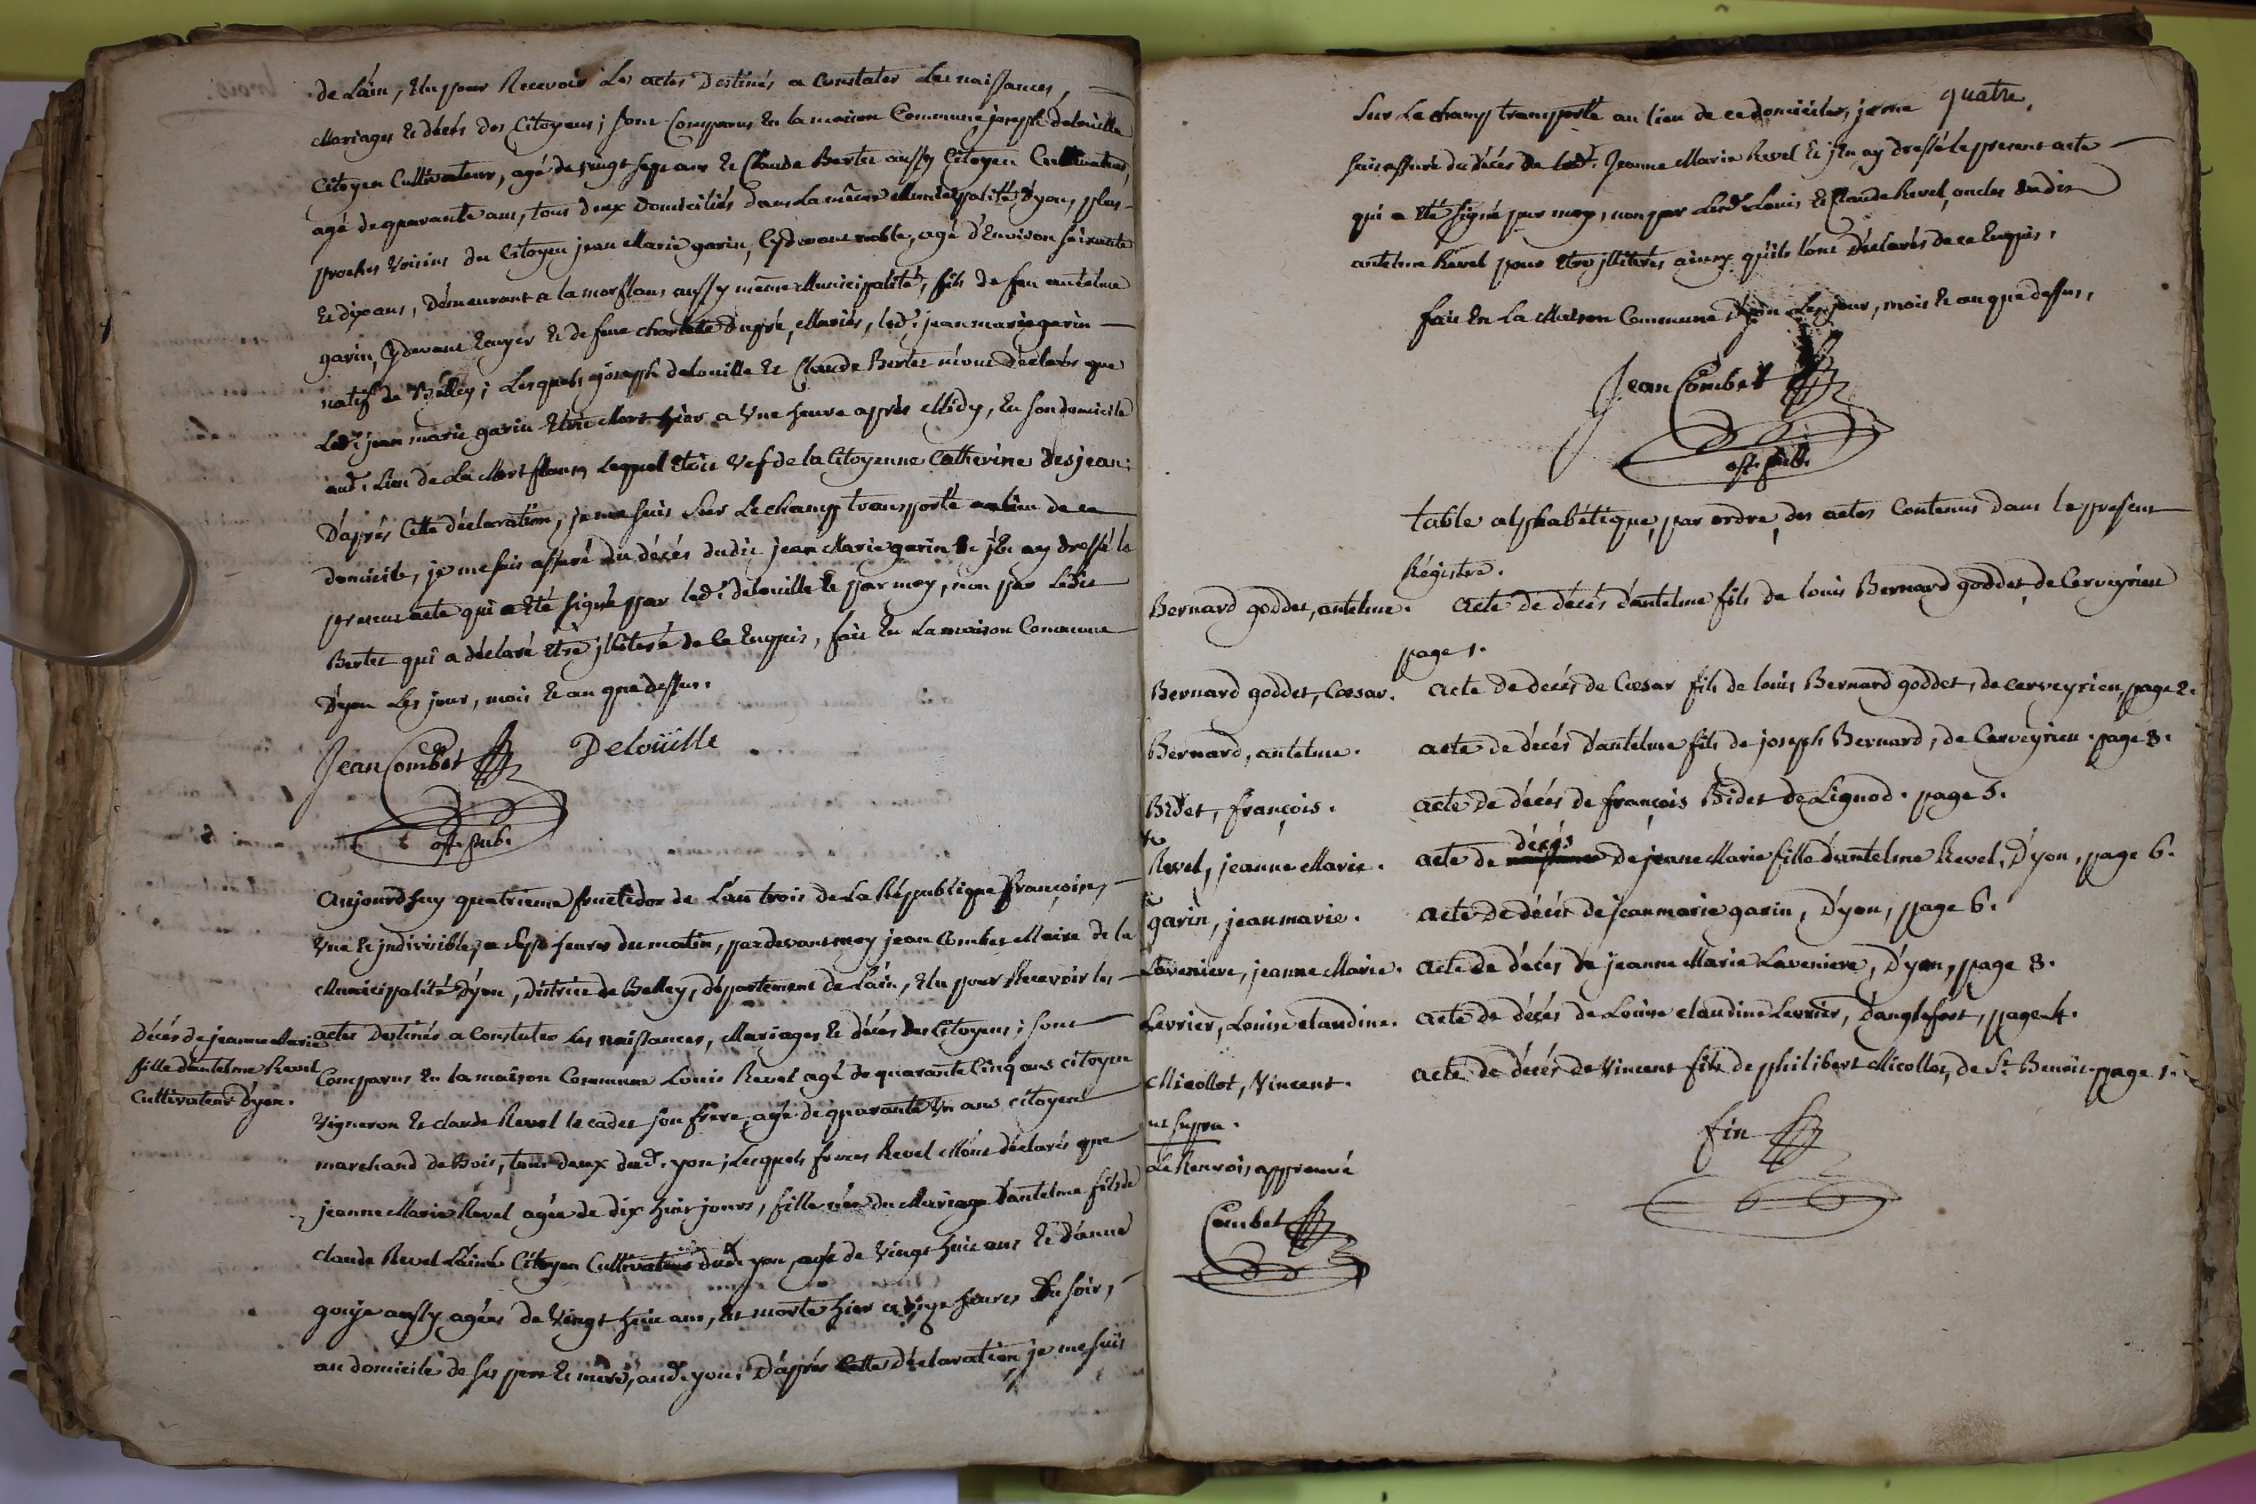 de Lain, Elu pour Recevoir Les actes Destinés a Constater Les naissances,
Mariages et décés des Citoyens; sont Comparus En la maison Commune joseph delouille
Citoyen Cultivateur, agé de vingt sept ans et Claude Bertet aussy Citoyen Cultivateur,
agé de quarante ans, tous deux Domiciliés dans La même Municipalité d'yon, plus
proches Voisins du Citoyen jean Marie garin, Cydevant noble, agé d'Environ soixante
et dix ans, Démeurant a la morflans aussy même Municipalité, fils de feu antelme
garin, Cydevant Ecuyer et de feue charlotte dugré, Mariés, led. jean marie garin
natif de Belley; Lesquels joseph delouille et Claude Bertet m'ont déclarés que
Led. jean marie garin etoit Mort hier a Une heure après Midy, En son domicile
aud. Lieu de La Morflans, Lequel etoit Vef de la Citoyenne Catherine desjean:
D'après Cette déclaration, je me suis Sur Le champ transporté au lieu de ce
domicile, je me suis assuré du décés dudit jean Marie garin et j'En ay dressé le
present acte qui a été signé par led. delouille et par moy, non par Ledit
Bertet qui a déclaré etre jlliteré de ce Enquis, fait En La maison Commune
D'yon Les jour, mois et an que dessus.
Jean Combet Deloüille
off. pub.
Aujourd'huy quatrieme fructidor de L'an trois de La République françoise,
Une et jndivisible, a sept heures du matin, pardevant moy jean Combet Maire de la
Municipalité D'yon, District de Belley, département de L'ain, Elu pour Recevoir les
Décés de jeanne Marie
fille d'antelme Revel
Cultivateur D'yon.
actes Destinés a Constater Les naissances, Mariages et décés des Citoyens; sont
Comparus En la maison Commune Louis Revel agé de quarante Cinq ans citoyen
Vigneron et claude Revel le cadet son frere, agé de quarante Un ans citoyen
marchand de Bois, tous deux dud. yon; Lesquels freres Revel M'ont déclarés que
jeanne Marie Revel agée de dix huit jours, fille née du Mariage d'antelme fils de
claude Revel L'ainé Citoyen Cultivateur dud. yon, agé de Vingt huit ans et d'anne
gouje aussy agée de Vingt huit ans, est morte hier a heures Du soir,
au domicile de ses pere et mere, aud. yon; D'après Cette déclaration je me suis
quatre.
Sur Le champ transporté au lieu de ce domicile, je me
suis assuré du décés de lad. Jeanne Marie Revel et j'En ay dressé le present acte
qui a été signé par moy, non par Lesd. Louis et Claude Revel, oncles dudit
antelme Revel pour etre jlliterés ainsy qu'ils l'ont déclarés de ce Enquis,
fait En La Maison Commune D'yon Les jour, mois et an que dessus,
Jean Combet
off. pub.
table alphabétique, par ordre, des actes Contenus dans le present
Régistre.
Bernard goddet, antelme. acte de décés d'antelme fils de louis Bernard goddet, de Cerveyrieu
page 1.
Bernard goddet, Cæsar. acte de décés de Cæsar fils de louis Bernard goddet, de cerveyrieu, page 2.
Bernard, antelme. acte de décés d'antelme fils de joseph Bernard, de Cerveyrieu. page 3.
Bidet, françois. acte de décés de françois Bidet de Lignod. page 5.
décés
Revel, jeanne Marie. acte de naissance de jeane Marie fille d'antelme Revel, D'yon, page 6.
garin, jean marie. acte de décés de jean marie garin, D'yon, page 6.
Laveniere, jeanne Marie. acte de décés de jeanne Marie Laveniere, D'yon, page 3.
Levrier, Louise claudine. acte de décés de Louise claudine Levrier, d'anglefort, page 4.
Micollet, Vincent. acte de décés de Vincent fils de philibert Micollet, de St. Benoit. page 1.
ut supra.
fin
Le Renvois approuvé
Combet